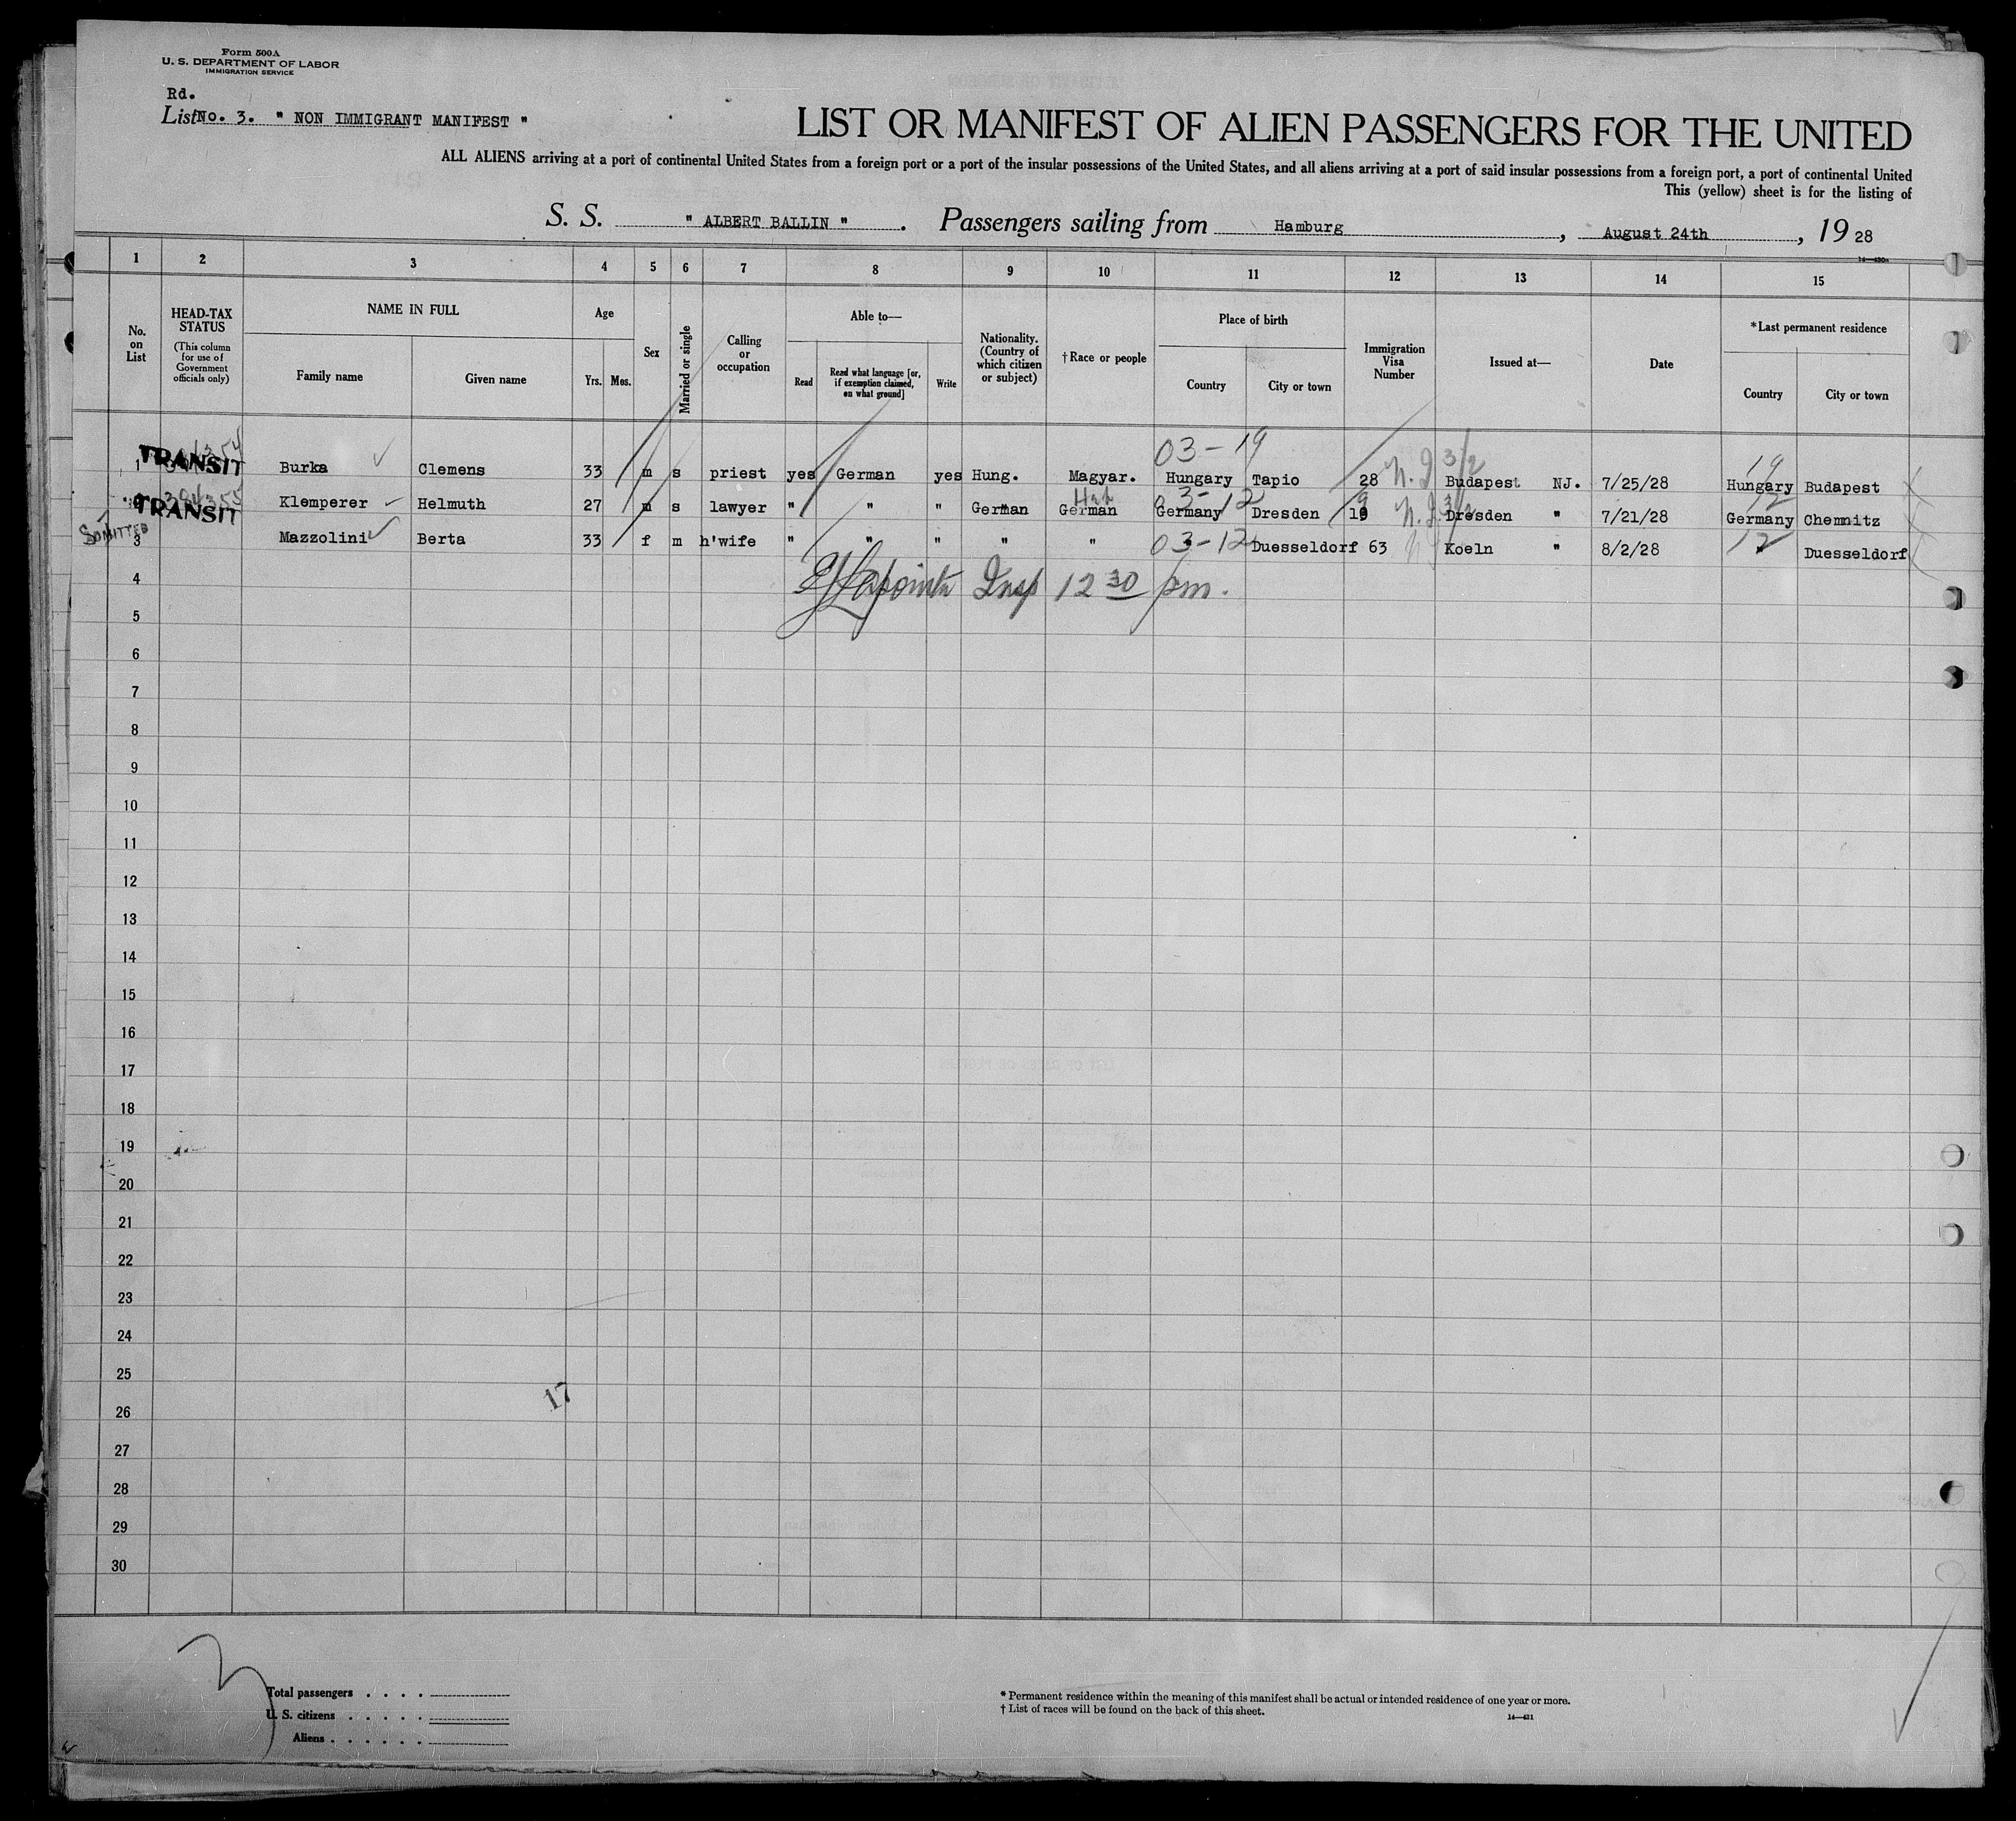 Form 500A
U. S. DEPARTMENT OF LABOR
IMMIGRATION SERVICE
Rd.
List No. 3. " NON IMMIGRANT MANIFEST "
LIST OR MANIFEST OF ALIEN PASSENGERS FOR THE UNITED
ALL ALIENS arriving at a port of continental United States from a foreign port or a port of the insular possessions of the United States, and all aliens arriving at a port of said insular possessions from a foreign port, a port of continental United
This (yellow) sheet is for the listing of
S. S. " ALBERT BALLIN " . Passengers sailing from Hamburg , August 24th , 19 28
1 2 3 4 5 6 7 8 9 10 11 12 13 14 15
No. on List
HEAD-TAX STATUS
(This column for use of Government officials only)
NAME IN FULL
Family name
Given name
Age
Yrs. Mos.
Sex
Married or single
Calling or occupation
Able to—
Read
Read what language [or, if exemption claimed, on what ground]
Write
Nationality. (Country of which citizen or subject)
†Race or people
Place of birth
Country
City or town
Immigration Visa Number
Issued at—
Date
*Last permanent residence
Country
City or town
03-19
1 TRANSIT Burka Clemens 33 m s priest yes German yes Hung. Magyar. Hungary Tapio 28 Budapest NJ. 7/25/28 19 Hungary Budapest
TRANSIT Klemperer Helmuth 27 m s lawyer " " " German German 03-12 Germany Dresden Dresden " 7/21/28 12 Germany Chemnitz
ADMITTED
3 Mazzolini Berta 33 f m h'wife " " " " " 03-12 Duesseldorf 63 Koeln " 8/2/28 12 " Duesseldorf
4 Insp 12 30 pm.
5
6
7
8
9
10
11
12
13
14
15
16
17
18
19
20
21
22
23
24
25
17
26
27
28
29
30
Total passengers . . . .
U. S. citizens . . . . .
Aliens . . . . . .
* Permanent residence within the meaning of this manifest shall be actual or intended residence of one year or more.
† List of races will be found on the back of this sheet.